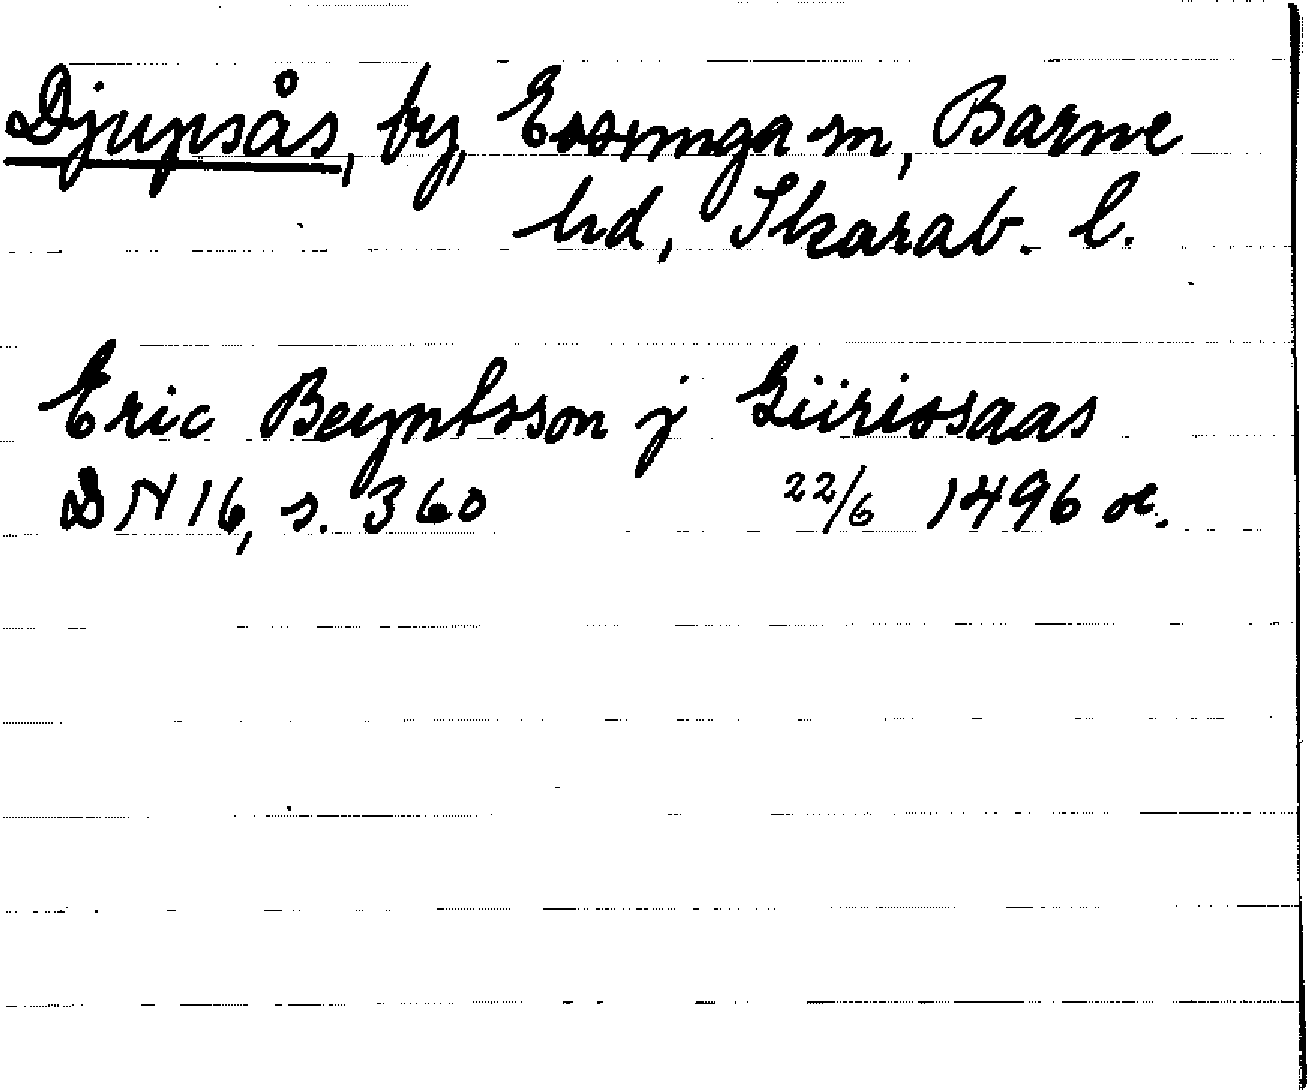 Djupsås, by, Essunga sn, Barne
hd, Skarab. l.
Eric Beyntsson j Giirissaas
DN 16, s. 360 22/6 1496 or.